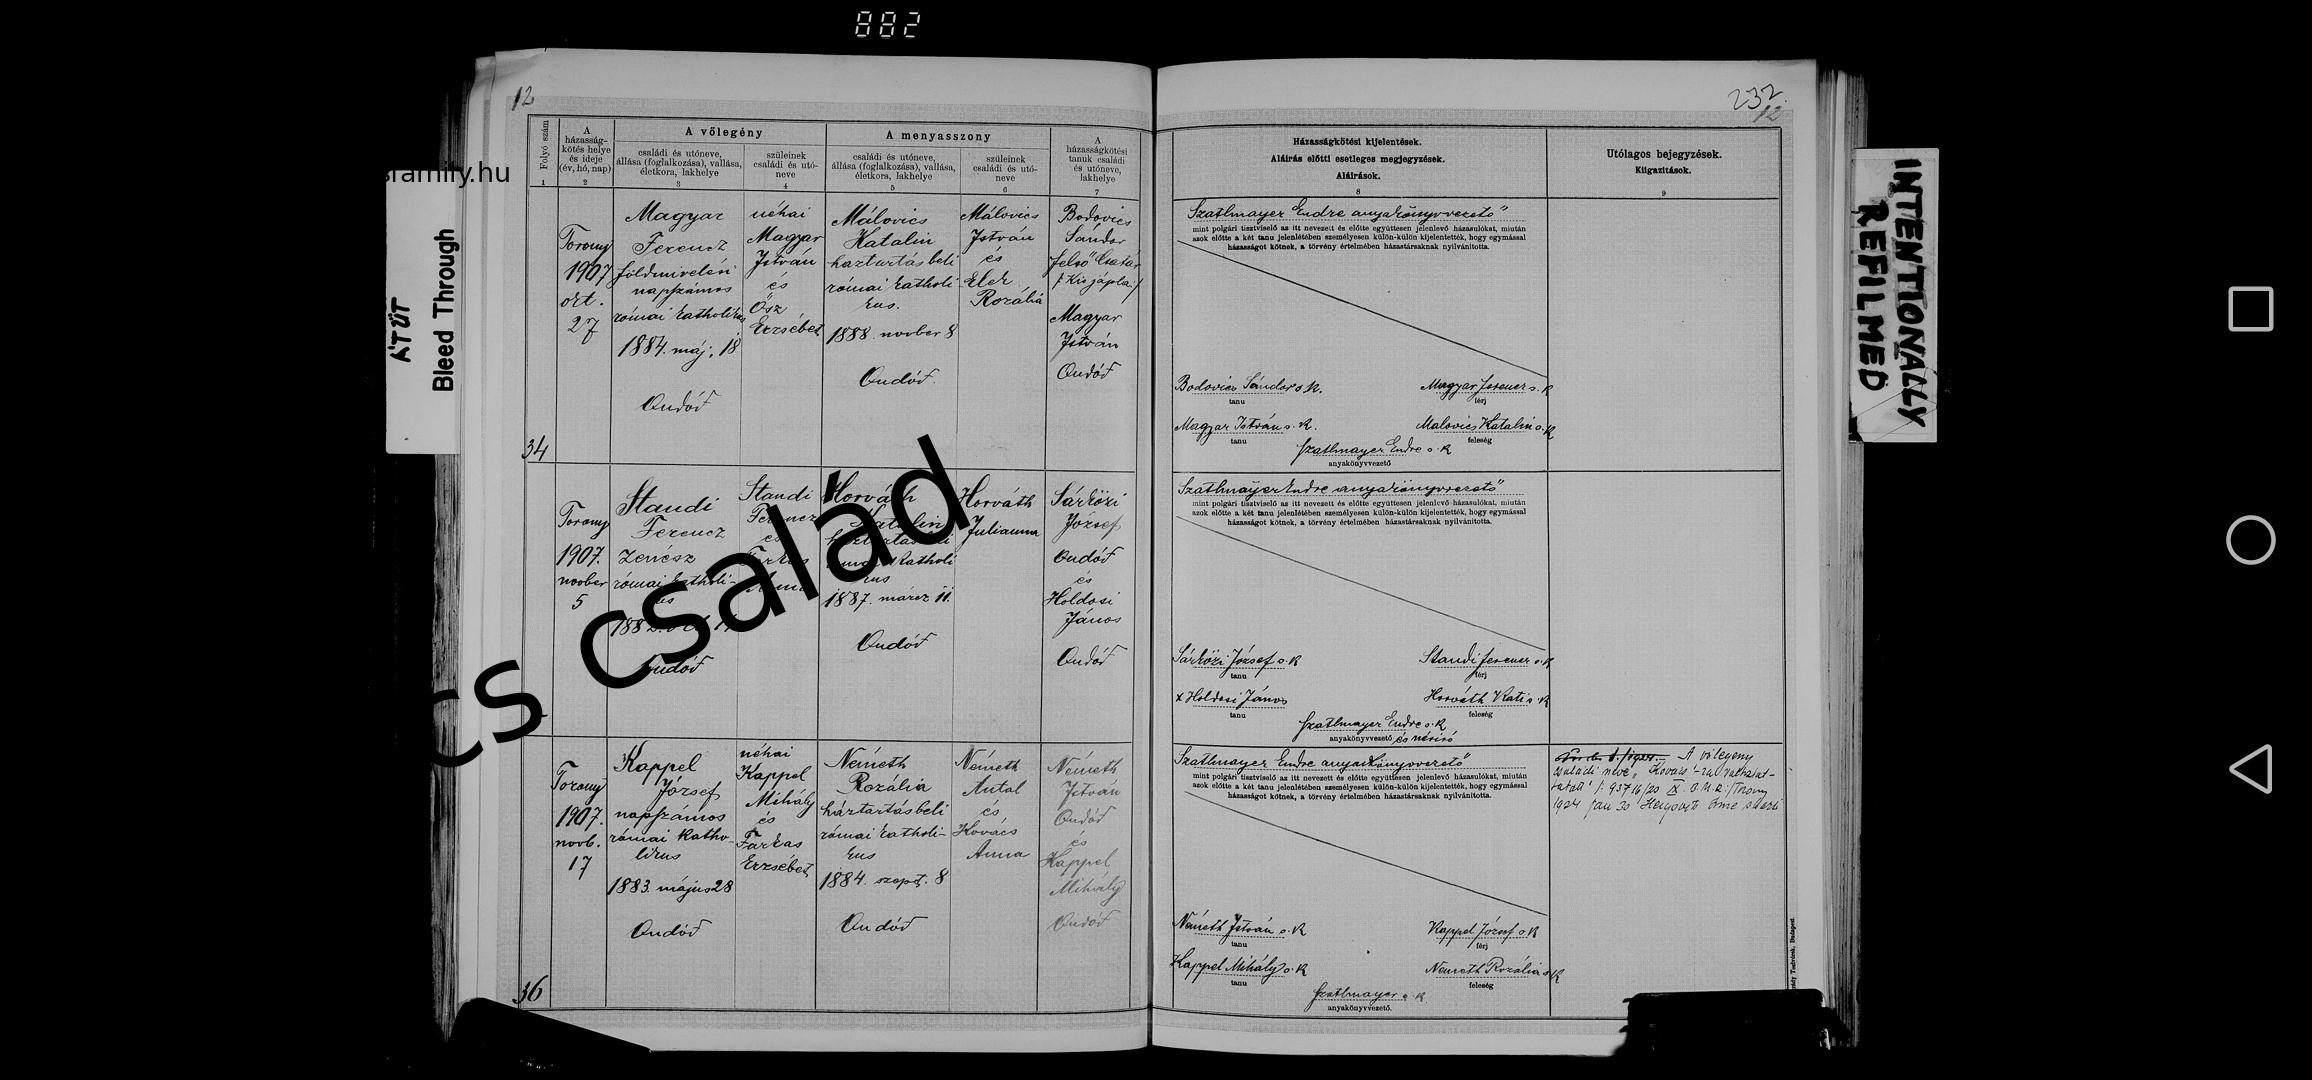 882
12
232
12
sfamily.hu
ÁTÜT
Bleed Through
INTENTIONALLY
REFILMED
Folyó szám
A
házasság-
kötés helye
és ideje
(év, hó, nap)
A vőlegény
családi és utóneve,
állása (foglalkozása), vallása,
életkora, lakhelye
szüleinek
családi és utó-
neve
A menyasszony
családi és utóneve,
állása (foglalkozása), vallása,
életkora, lakhelye
szüleinek
családi és utó-
neve
A
házasságkötési
tanuk családi
és utóneve,
lakhelye
Házasságkötési kijelentések.
Aláirás előtti esetleges megjegyzések.
Aláirások.
Utólagos bejegyzések.
Kiigazitások.
1 2 3 4 5 6 7 8 9
34
Torony
1907
okt.
27
Magyar
Ferencz
földmivelési
napszámos
római katholikus
1884. máj. 18
Ondód
néhai
Magyar
István
és
Ősz
Erzsébet
Málovics
Katalin
háztartásbeli
római katholi
kus.
1888. novber 8
Ondód.
Málovics
István
és
Elek
Rozália
Bodovics
Sándor
felső Csatár
Magyar
István
Ondód
Szathmayer Endre anyakönyvvezető
mint polgári tisztviselő az itt nevezett és előtte együttesen jelenlevő házasulókat, miután
azok előtte a két tanu jelenlétében személyesen külön-külön kijelentették, hogy egymással
házasságot kötnek, a törvény értelmében házastársaknak nyilvánitotta.
Bodovics Sándor s. k.
tanu
Magyar Ferencz s. k
férj
Magyar István s. k.
tanu
Malovics Katalin s. k
feleség
Szathmayer Endre s. k
anyakönyvvezető
Torony
1907.
novber
5
Standi
Ferencz
zenész
római katholi-
kus
Ondód
Standi
Ferencz
és
Farkas
Anna
Horváth
Katalin
háztartásbeli
római katholi
kus
1887. márcz 11.
Ondód
Horváth
Julianna
Sárközi
József
Ondód
és
Holdosi
János
Ondód
Szathmayer Endre anyakönyvvezető
mint polgári tisztviselő az itt nevezett és előtte együttesen jelenlevő házasulókat, miután
azok előtte a két tanu jelenlétében személyesen külön-külön kijelentették, hogy egymással
házasságot kötnek, a törvény értelmében házastársaknak nyilvánitotta.
Sárközi József s. k
tanu
Standi Ferencz s. k
férj
x Holdosi János
tanu
Horváth Kati s. k
feleség
Szathmayer Endre s. k
anyakönyvvezető és névíró
cs család
36
Torony
1907.
novb.
17
Kappel
József
napszámos
római katho-
likus
1883. május 28
Ondód
néhai
Kappel
Mihály
és
Farkas
Erzsébet
Németh
Rozália
háztartásbeli
római katholi-
kus
1884. szept. 8
Ondód
Németh
Antal
és
Kovács
Anna
Németh
István
Ondód
és
Kappel
Mihály
Ondód
Szathmayer Endre anyakönyvvezető
mint polgári tisztviselő az itt nevezett és előtte együttesen jelenlevő házasulókat, miután
azok előtte a két tanu jelenlétében személyesen külön-külön kijelentették, hogy egymással
házasságot kötnek, a törvény értelmében házastársaknak nyilvánitotta.
A vőlegény
családi neve „Kovács"-ra változtat-
Németh István s. k
tanu
Kappel József s. k
férj
Kappel Mihály s. k
tanu
Németh Rozália s. k
feleség
Szathmayer s. k
anyakönyvvezető.